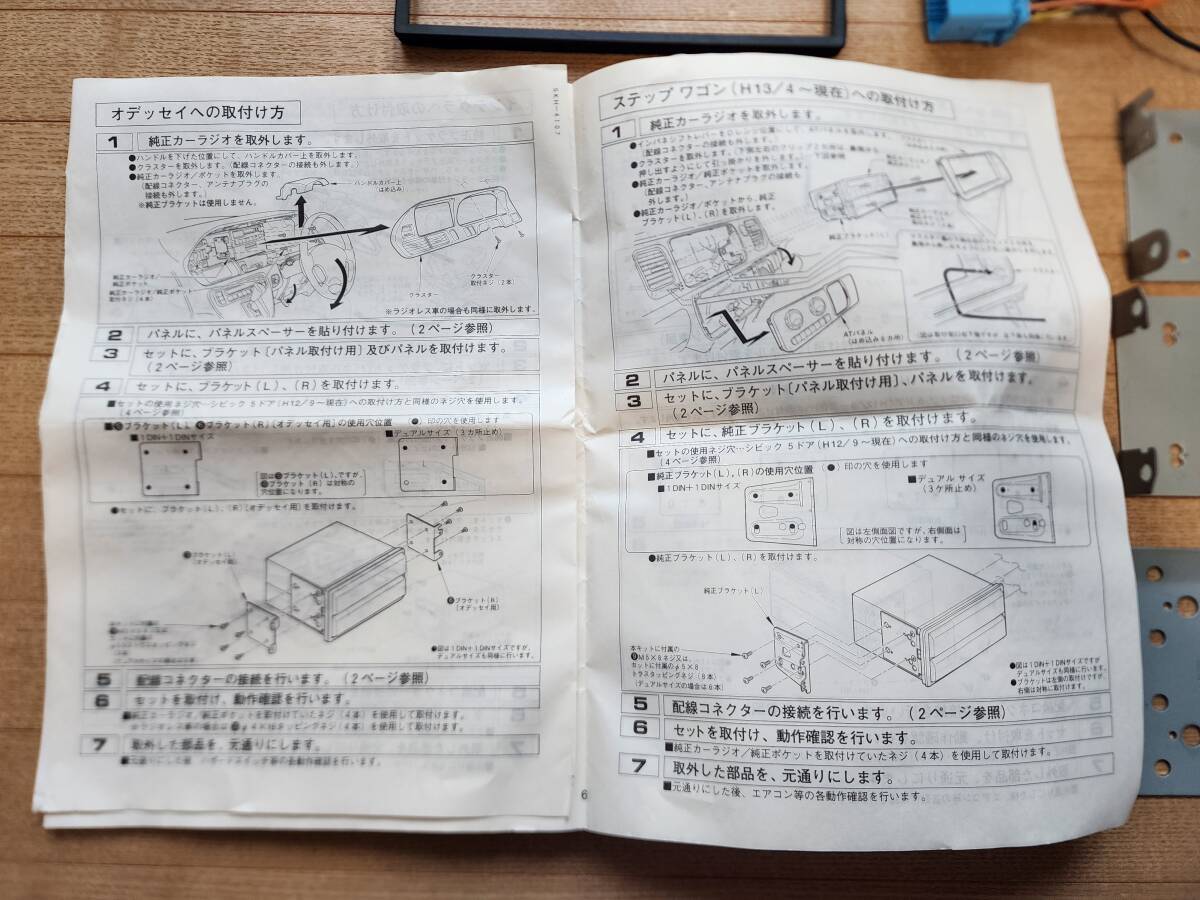 オデッセイへの取付け方
1 純正カーラジオを取外します。
●ハンドルを下げた位置にして、ハンドルカバー上を取外します。
●クラスターを取外します。(配線コネクターの接続も外します。)
●純正カーラジオ/ポケットを取外します。
(配線コネクター、アンテナプラグの
接続も外します。)
※純正ブラケットは使用しません。
ハンドルカバー上
(はめ込み)
純正カーラジオ/
純正ポケット
純正カーラジオ/純正ポケット
取付ネジ(4本)
クラスター
クラスター
取付ネジ(2本)
※ラジオレス車の場合も同様に取外します。
2 パネルに、パネルスペーサーを貼り付けます。(2ページ参照)
3 セットに、ブラケット〔パネル取付け用〕及びパネルを取付けます。
(2ページ参照)
4 セットに、ブラケット(L)、(R)を取付けます。
■セットの使用ネジ穴…シビック 5ドア(H12/9~現在)への取付け方と同様のネジ穴を使用します。
(4ページ参照)
■❺ブラケット(L)、❻ブラケット(R)[オデッセイ用]の使用穴位置
(●)印の穴を使用します
■1DIN+1DINサイズ
■デュアルサイズ(3カ所止め)
図は❺ブラケット(L)、ですが、
❻ブラケット(R)は対称の
穴位置になります。
L
●セットに、ブラケット(L)、(R)[オデッセイ用]を取付けます。
❺ブラケット(L)
(オデッセイ用)
❻ブラケット(R)
[オデッセイ用]
●図は1DIN+1DINサイズですが、
デュアルサイズも同様に行います。
5 配線コネクターの接続を行います。(2ページ参照)
6 セットを取付け、動作確認を行います。
■純正カーラジオ/純正ポケットを取付けていたネジ(4本)を使用して取付けます。
7 取外した部品を、元通りにします。
SKH-4107
6
ステップ ワゴン(H13/4~現在)への取付け方
1 純正カーラジオを取外します。
(配線コネクターの接続も外します。)
押し出すようにして引っ掛かりを外します。)
●純正カーラジオ/純正ポケットを取外します。
(配線コネクター、アンテナプラグの接続も
外します。)
●純正カーラジオ/ポケットから、純正
ブラケット(L)、(R)を取外します。
純正ブラケット(L)
ATパネル
2 パネルに、パネルスペーサーを貼り付けます。(2ページ参照)
3 セットに、ブラケット〔パネル取付け用〕、パネルを取付けます。
(2ページ参照)
4 セットに、純正ブラケット(L)、(R)を取付けます。
■セットの使用ネジ穴…シビック 5ドア(H12/9~現在)への取付け方と同様のネジ穴を使用します。
(4ページ参照)
■純正ブラケット(L)、(R)の使用穴位置 (●)印の穴を使用します
■1DIN+1DINサイズ
■デュアル サイズ
(3ケ所止め)
図は左側面図ですが、右側面は
対称の穴位置になります。
●純正ブラケット(L)、(R)を取付けます。
純正ブラケット(L)
本キットに付属の
❾M5×8ネジ又は、
セットに付属のφ5×8
トラスタッピングネジ(8本)
(デュアルサイズの場合は6本)
●図は1DIN+1DINサイズですが
デュアルサイズも同様に行います。
●ブラケットは左側の取付けですが、
右側は対称に取付けます。
5 配線コネクターの接続を行います。(2ページ参照)
6 セットを取付け、動作確認を行います。
■純正カーラジオ/純正ポケットを取付けていたネジ(4本)を使用して取付けます。
7 取外した部品を、元通りにします。
■元通りにした後、エアコン等の各動作確認を行います。